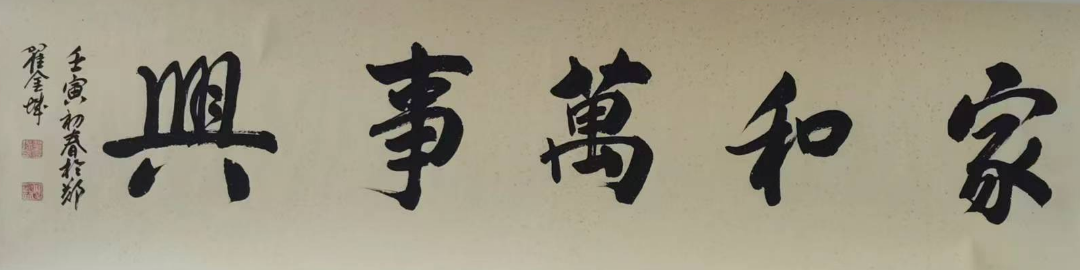 家和萬事興
壬寅初春於鄭
翟金城